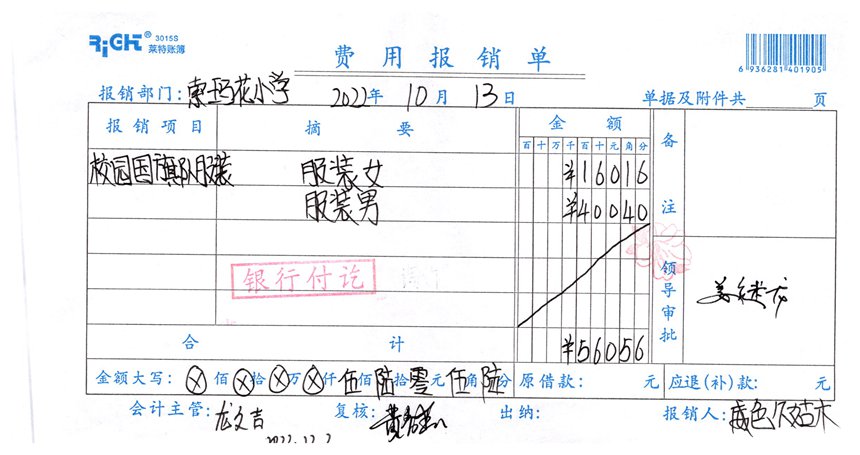 RiGHT® 3015S
莱特账簿
费用报销单
6 936281 401905
报销部门:索玛花小学 2022年 10月 13日 单据及附件共 页
报销项目 摘要 金额 备注
百十万千百十元角分
校园国旗队服装 服装女 ¥16016
服装男 ¥40040
银行付讫
领导审批
合计 ¥56056
金额大写:ⓧ佰ⓧ拾ⓧ万ⓧ仟伍佰陆拾零元伍角陆分 原借款: 元 应退(补)款: 元
会计主管:龙文吉 复核: 出纳: 报销人: